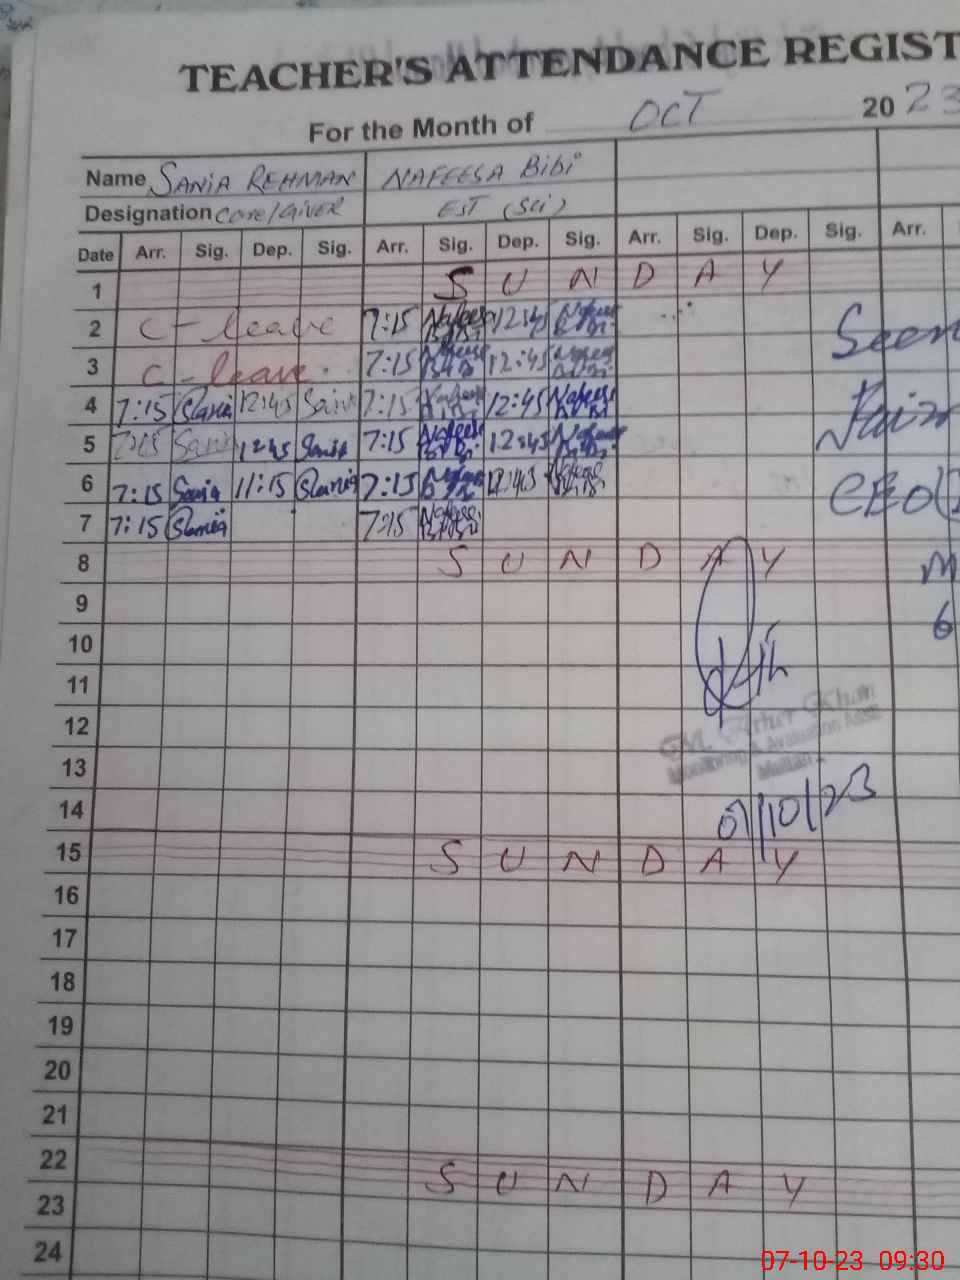 TEACHER'S ATTENDANCE REGIST
For the Month of OCT 2023
Name SANIA REHMAN NAFEESA BiBi
Designation Care/GIVER EST (Sci)
Date Arr. Sig. Dep. Sig. Arr. Sig. Dep. Sig. Arr. Sig. Dep. Sig. Arr.
1 S U N D A Y
2 C - leave 7:15 Nafeesa Bibi 12:45 Nafeesa Bibi Seen
3 C - leave. 7:15 Nafeesa Bibi 12:45 Nafeesa Bibi
4 7:15 Sania 12:45 Sania 7:15 Nafeesa Bibi 12:45 Nafeesa Bibi
5 7:15 Sania 12:45 Sania 7:15 Nafeesa Bibi 12:45 Nafeesa Bibi
6 7:15 Sania 11:15 Sania 7:15 Nafeesa Bibi 12:45 Nafeesa Bibi CEO
7 7:15 Sania 7:15 Nafeesa Bibi
8 S U N D A Y M
9 6
10
11
12 Khan
13 Monitoring & Evaluation Asstt
Multan
14 07/10/23
15 S U N D A Y
16
17
18
19
20
21
22 S U N D A Y
23
24
07-10-23 09:30